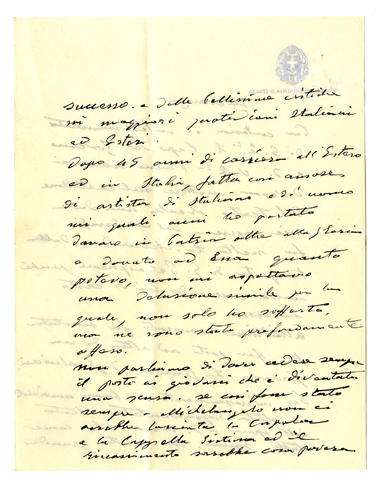 successo e delle bellissime critiche
sui maggiori quotidiani Italiani
ed Esteri.
Dopo 45 anni di carriera all'Estero
ed in Italia, fatta con amore
di artista di Italiano e di uomo
nei quali anni ho portato
danaro in Patria oltre alla
e donato ad Essa quanto
potevo, non mi aspettavo
una delusione simile per la
quale, non solo ho sofferto,
ma ne sono stato profondamente
offeso.
Non parliamo di dover cedere sempre
il posto ai giovani che è diventata
una scusa. Se così fosse stato
sempre Michelangelo non ci
avrebbe lasciato la Cupola
e la Cappella Sistina ed il
Rinascimento sarebbe cosa povera